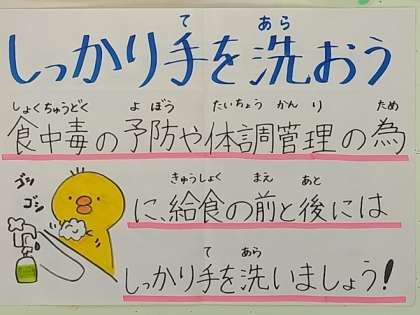 て あら
しっかり手を洗おう
しょくちゅうどく よ ぼう たいちょう かん り ため
食中毒の予防や体調管理の為
きゅうしょく まえ あと
に、給食の前と後には
て あら
しっかり手を洗いましょう!
ゴシ
ゴシ